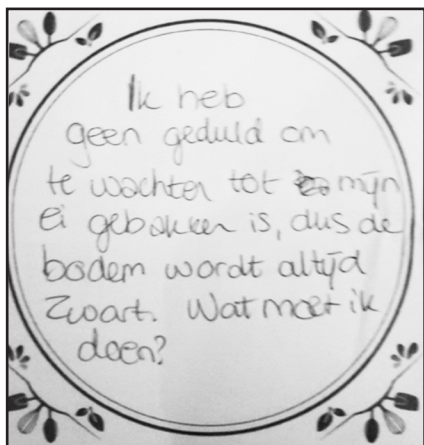 Ik heb
geen geduld om
te wachten tot mijn
ei gebakken is, dus de
bodem wordt altijd
zwart. Wat moet ik
doen?